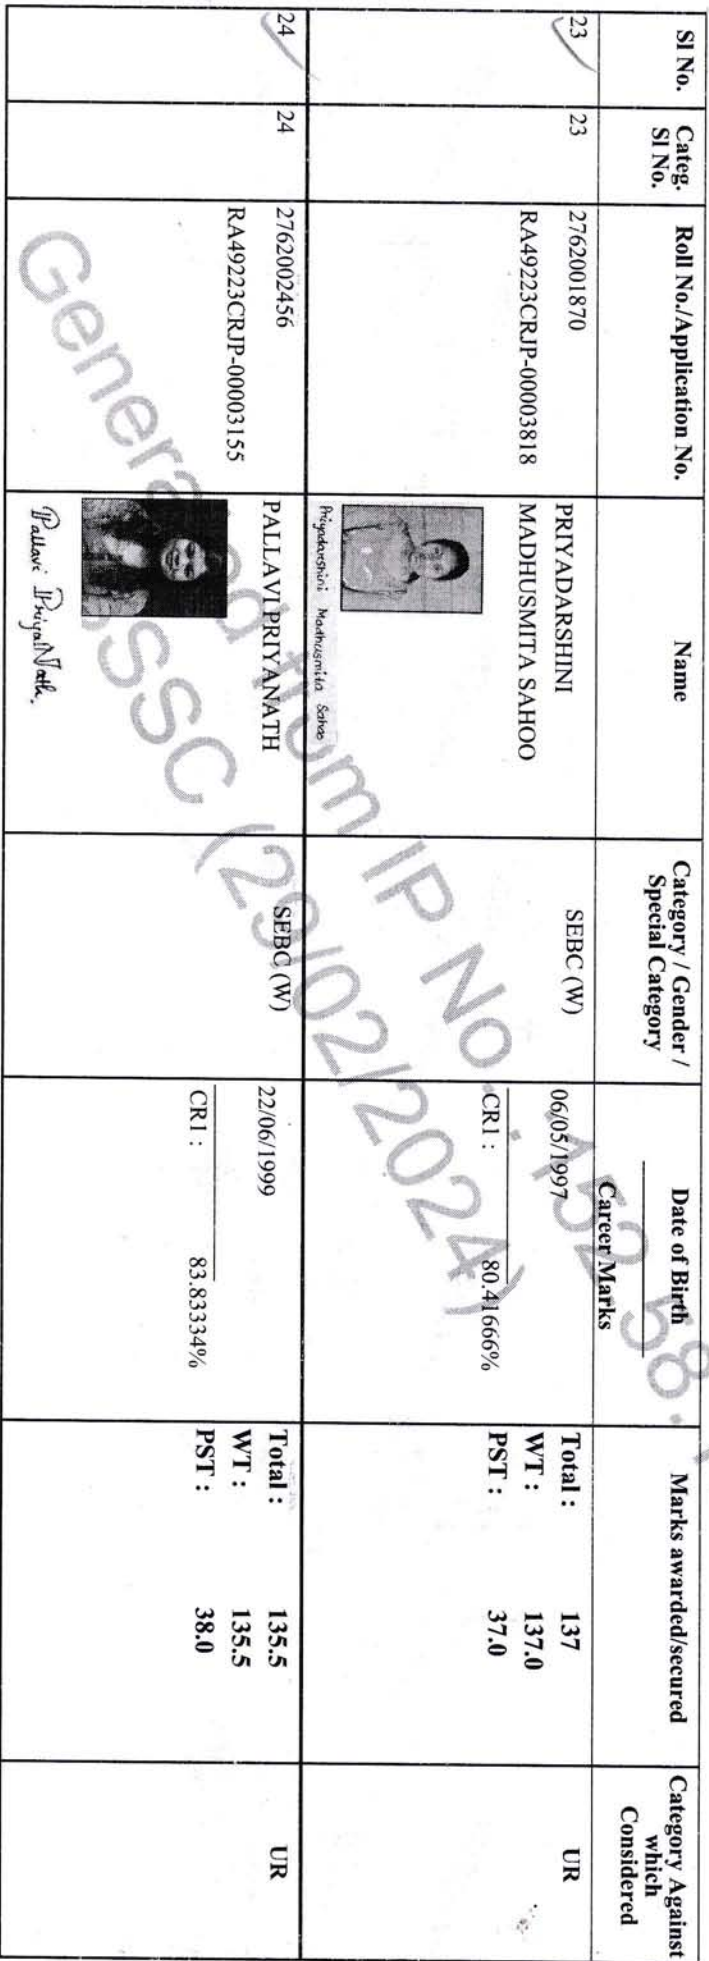 Sl No.
Categ.
Sl No.
Roll No./Application No.
Name
Category / Gender /
Special Category
Date of Birth
Career Marks
Marks awarded/secured
Category Against
which
Considered
23
23
2762001870
RA49223CRJP-00003818
PRIYADARSHINI
MADHUSMITA SAHOO
Priyadarshini Madhusmita Sahoo
SEBC (W)
06/05/1997
CR1 : 80.41666%
Total : 137
WT : 137.0
PST : 37.0
UR
24
24
2762002456
RA49223CRJP-00003155
PALLAVI PRIYANATH
Pallavi PriyaNath.
SEBC (W)
22/06/1999
CR1 : 83.83334%
Total : 135.5
WT : 135.5
PST : 38.0
UR
Generated from IP No. : 152.58.
SSC (29/02/2024)